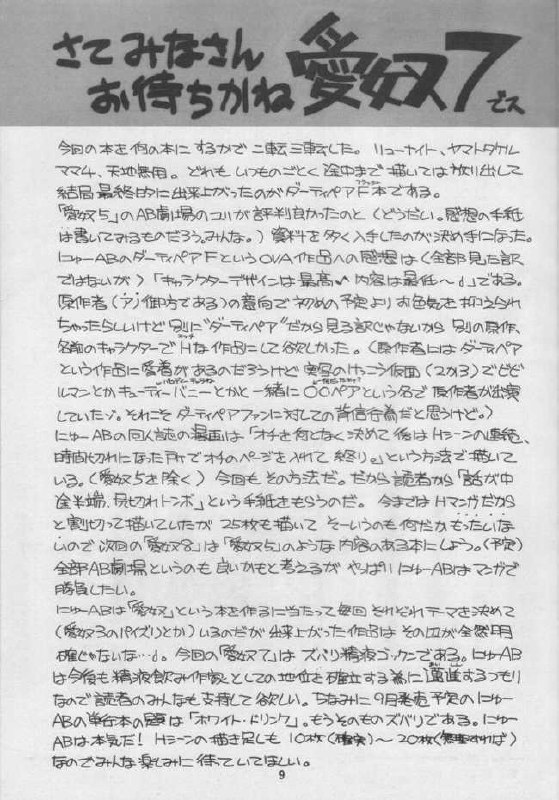 さてみなさん
お待ちかね 愛奴7 でス
今回の本を何の本にするかで二転三転した。リューナイト、ヤマトタケル
ママ4、天地無用。どれもいつものごとく途中まで描いては放り出して
結局最終的に出来上がったのがダーティペアF本である。
「愛奴5」のAB劇場のノリが評判良かったのと(どうだい。感想の手紙
は書いてみるものだろう。みんな。)資料を多く入手したのが決め手になった。
にゅーABのダーティペアFというOVA作品への感想は(全部見た訳
ではないが)「キャラクターデザインは最高♪内容は最低〜」である。
原作者(御方である)の意向で初めの予定よりお色気を抑えられ
ちゃったらしいけど別に"ダーティペア"だから見る訳じゃないから別の原作、
名前のキャラクターでHな作品にして欲しかった。(原作者にはダーティペア
という作品に愛着があるのだろうけど実写のけっこう仮面(2か3)でどど
ルマンとかキューティーバニーとかと一緒に〇〇ペアという名で原作者が出演
していた。それこそダーティペアファンに対しての背信行為だと思うけど。)
にゅーABの同人誌の漫画は「オチを何となく決めて後はHシーンの連続、
時間切れになった所でオチのページを入れて終り。」という方法で描いて
いる。(愛奴5を除く)今回もその方法だ。だから読者から「話が中
途半端、尻切れトンボ」という手紙をもらうのだ。今まではHマンガだから
と割切って描いていたが25枚も描いてそーいうのも何だかもったいな
いので次回の「愛奴8」は「愛奴5」のような内容のある本にしよう。(予定)
全部AB劇場というのも良いかもと考えるがやっぱりにゅーABはマンガで
勝負したい。
にゅーABは「愛奴」という本を作るに当たって毎回それぞれテーマを決めて
(愛奴3のパイズリとか)いるのだが出来上がった作品はそのへんが全然明
確じゃないな…。今回の「愛奴7」はズバリ精液ゴックンである。にゅーAB
は今後も精液飲み作家としての地位を確立する為に邁進するつもり
なので読者のみんなも支持して欲しい。ちなみに9月発売予定のにゅー
ABの単行本の題は「ホワイト・ドリンク」。もうそのものズバリである。にゅー
ABは本気だ!Hシーンの描き足しも10枚(確実)〜20枚(無理すれば)
なのでみんな楽しみに待っていてほしい。
9